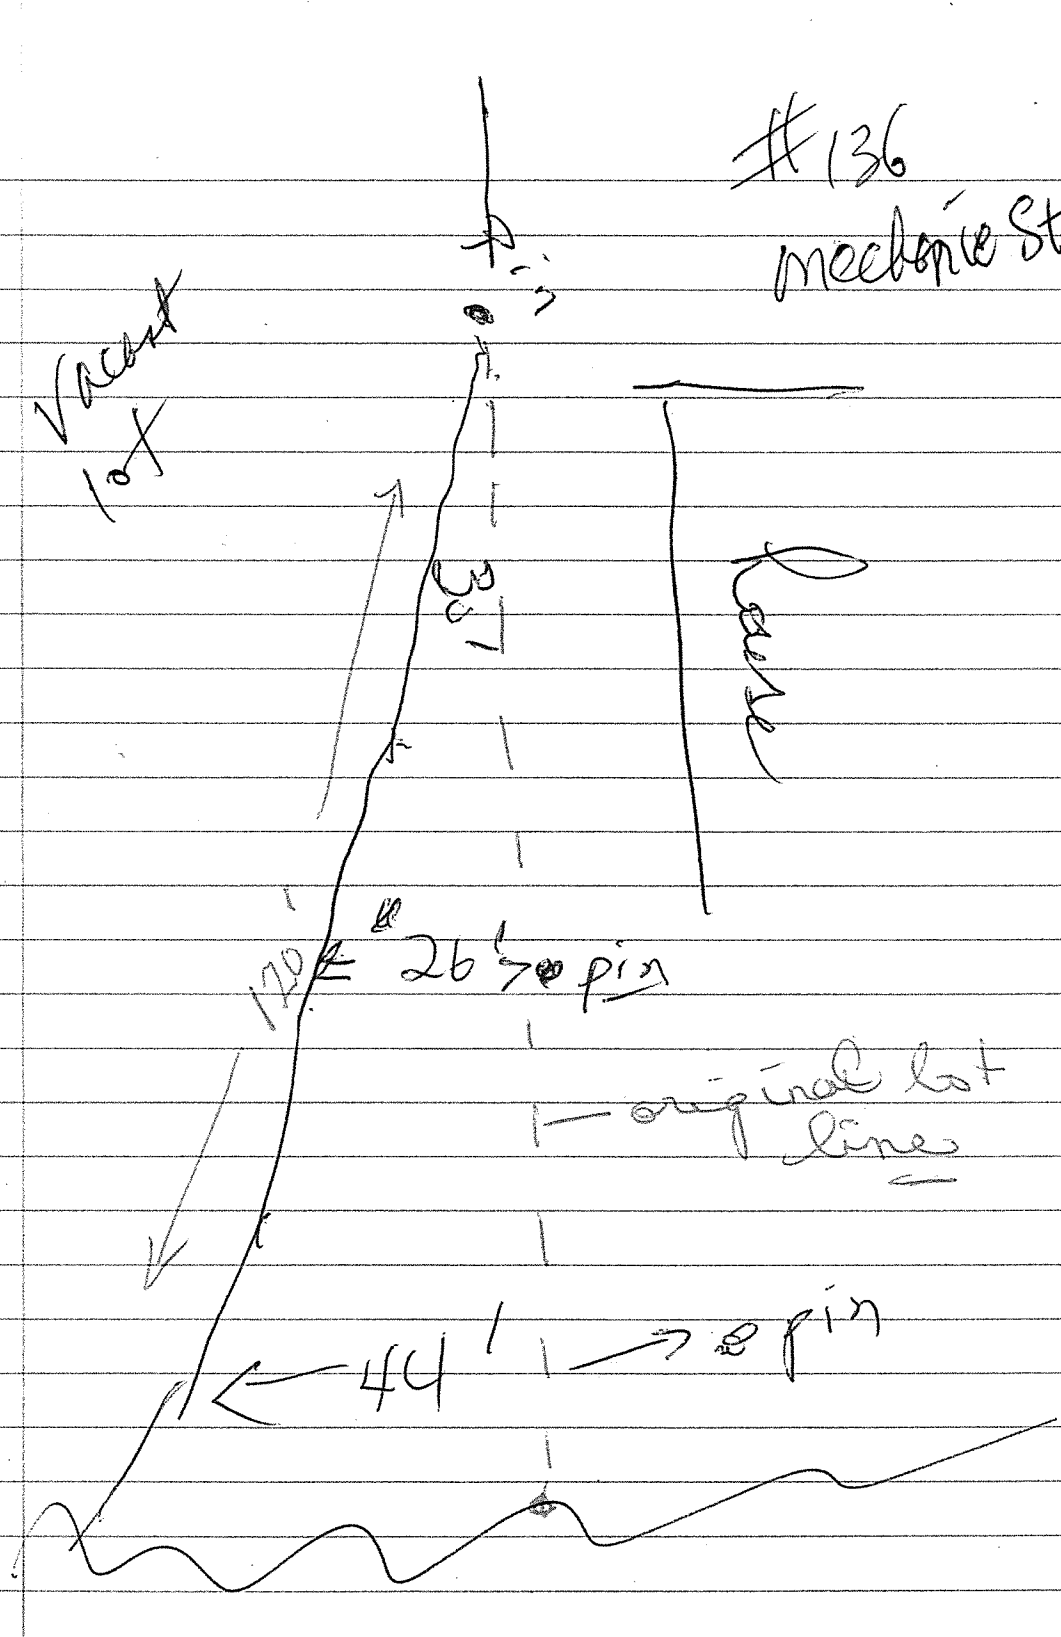 #136
mechanic St
Vacant
lot
House
120
26' pin
original lot
line
44' pin